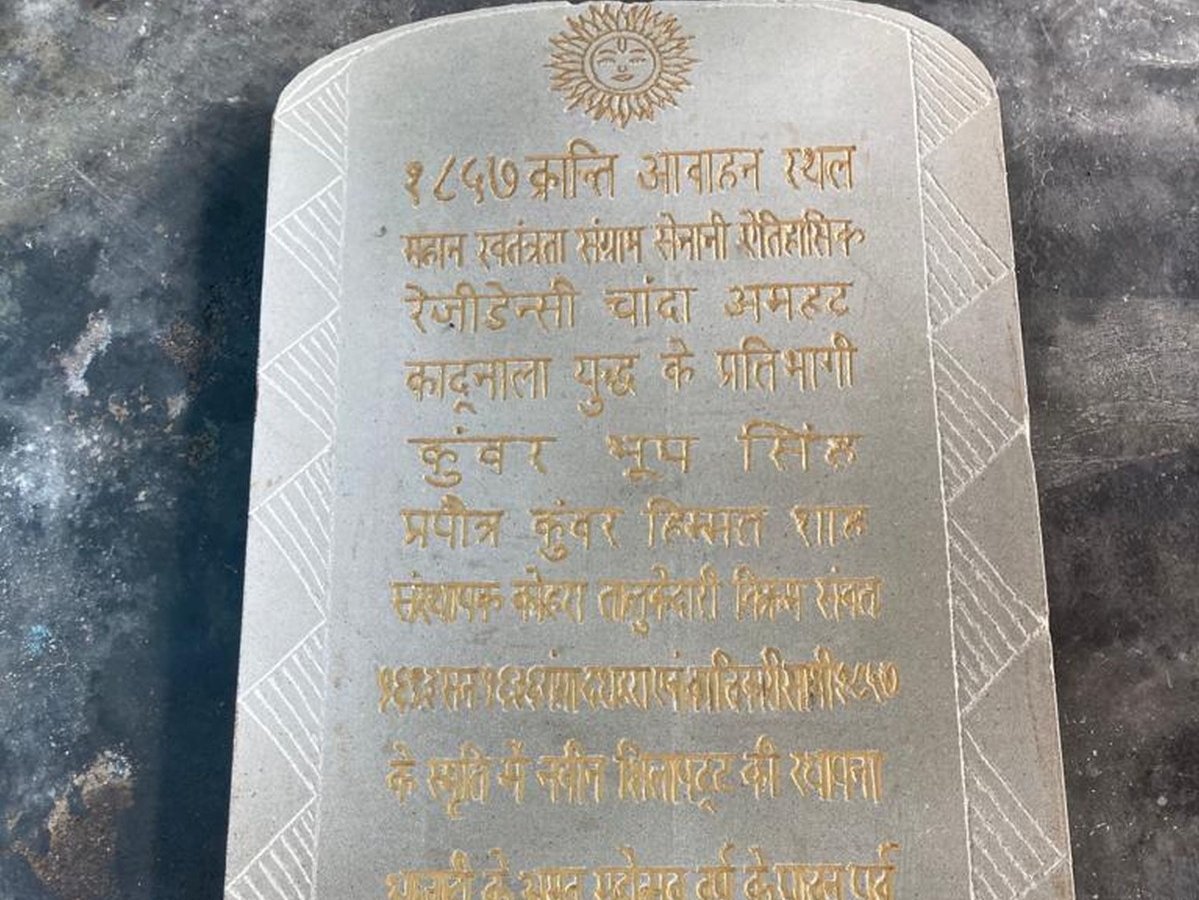 १८५७ क्रान्ति आवाहन स्थल
महान स्वतंत्रता संग्राम सेनानी ऐतिहासिक
रेजीडेन्सी चांदा अमहट
कादूनाला युद्ध के प्रतिभागी
कुंवर भूप सिंह
प्रपौत्र कुंवर हिम्मत शाह
संस्थापक कोहरा तालुकेदारी विक्रम संवत
१८५७
के स्मृति में नवीन शिलापट्ट की स्थापना
आजादी के अमृत महोत्सव वर्ष के पावन पर्व